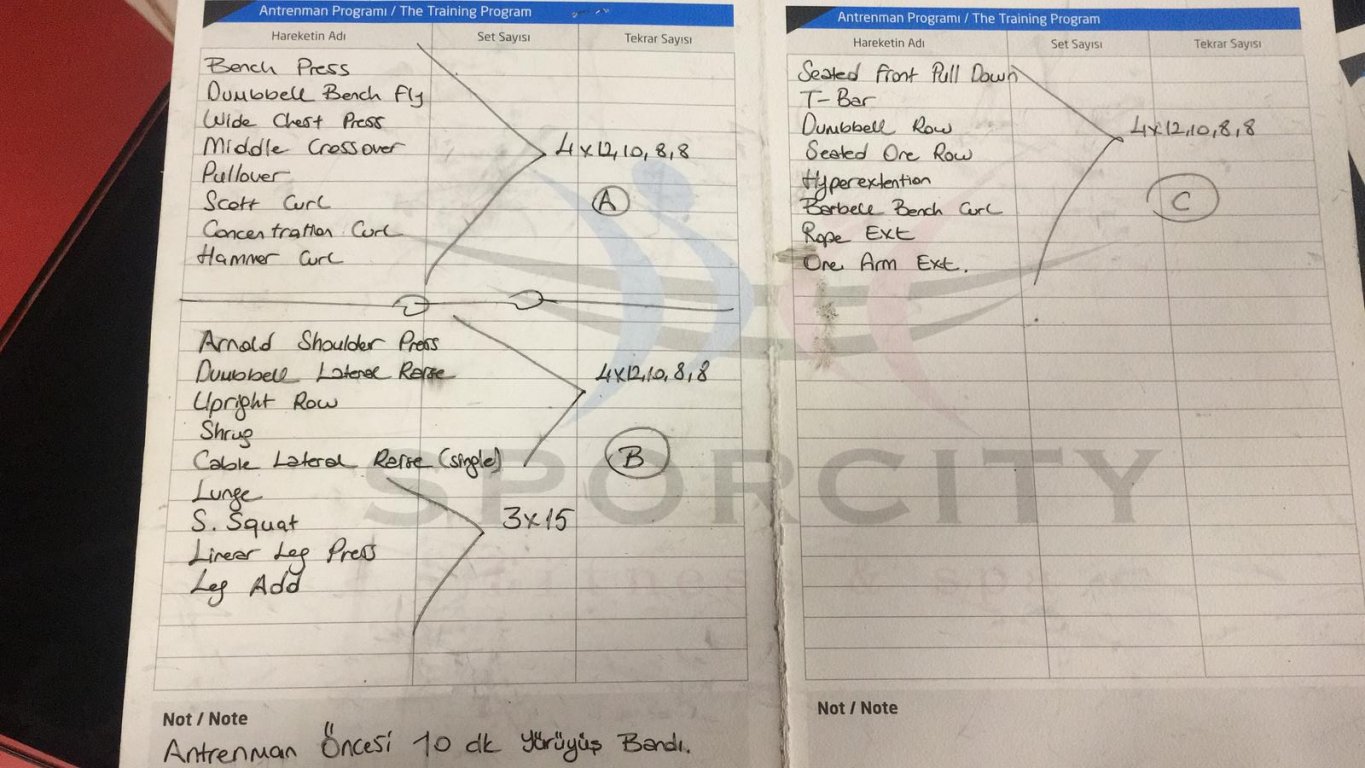 Antrenman Programı / The Training Program
Hareketin Adı Set Sayısı Tekrar Sayısı
Bench Press
Dumbbell Bench Fly
Wide Chest Press
Middle Crossover
4x12,10,8,8
Pullover
Scott Curl
A
Concentration Curl
Hammer Curl
Arnold Shoulder Press
Dumbbell Lateral Raise
4x12,10,8,8
Upright Row
Shrug
Cable Lateral Raise (single)
B
Lunge
S. Squat
3x15
Linear Leg Press
Leg Add
Not / Note
Antrenman Öncesi 10 dk Yürüyüş Bandı.
Antrenman Programı / The Training Program
Hareketin Adı Set Sayısı Tekrar Sayısı
Seated Front Pull Down
T-Bar
Dumbbell Row
4x12,10,8,8
Seated One Row
Hyperextention
Barbell Bench Curl
C
Rope Ext
One Arm Ext.
Not / Note
SPORCITY